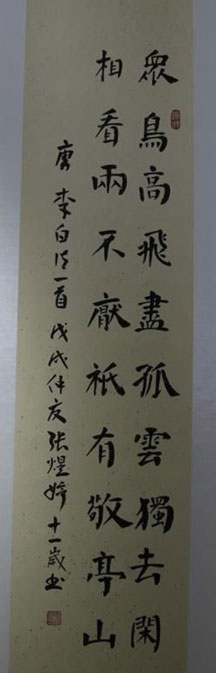 眾鳥高飛盡孤雲獨去閑
相看兩不厭祇有敬亭山
唐李白诗一首戊戌仲友张煜婷十一歲书